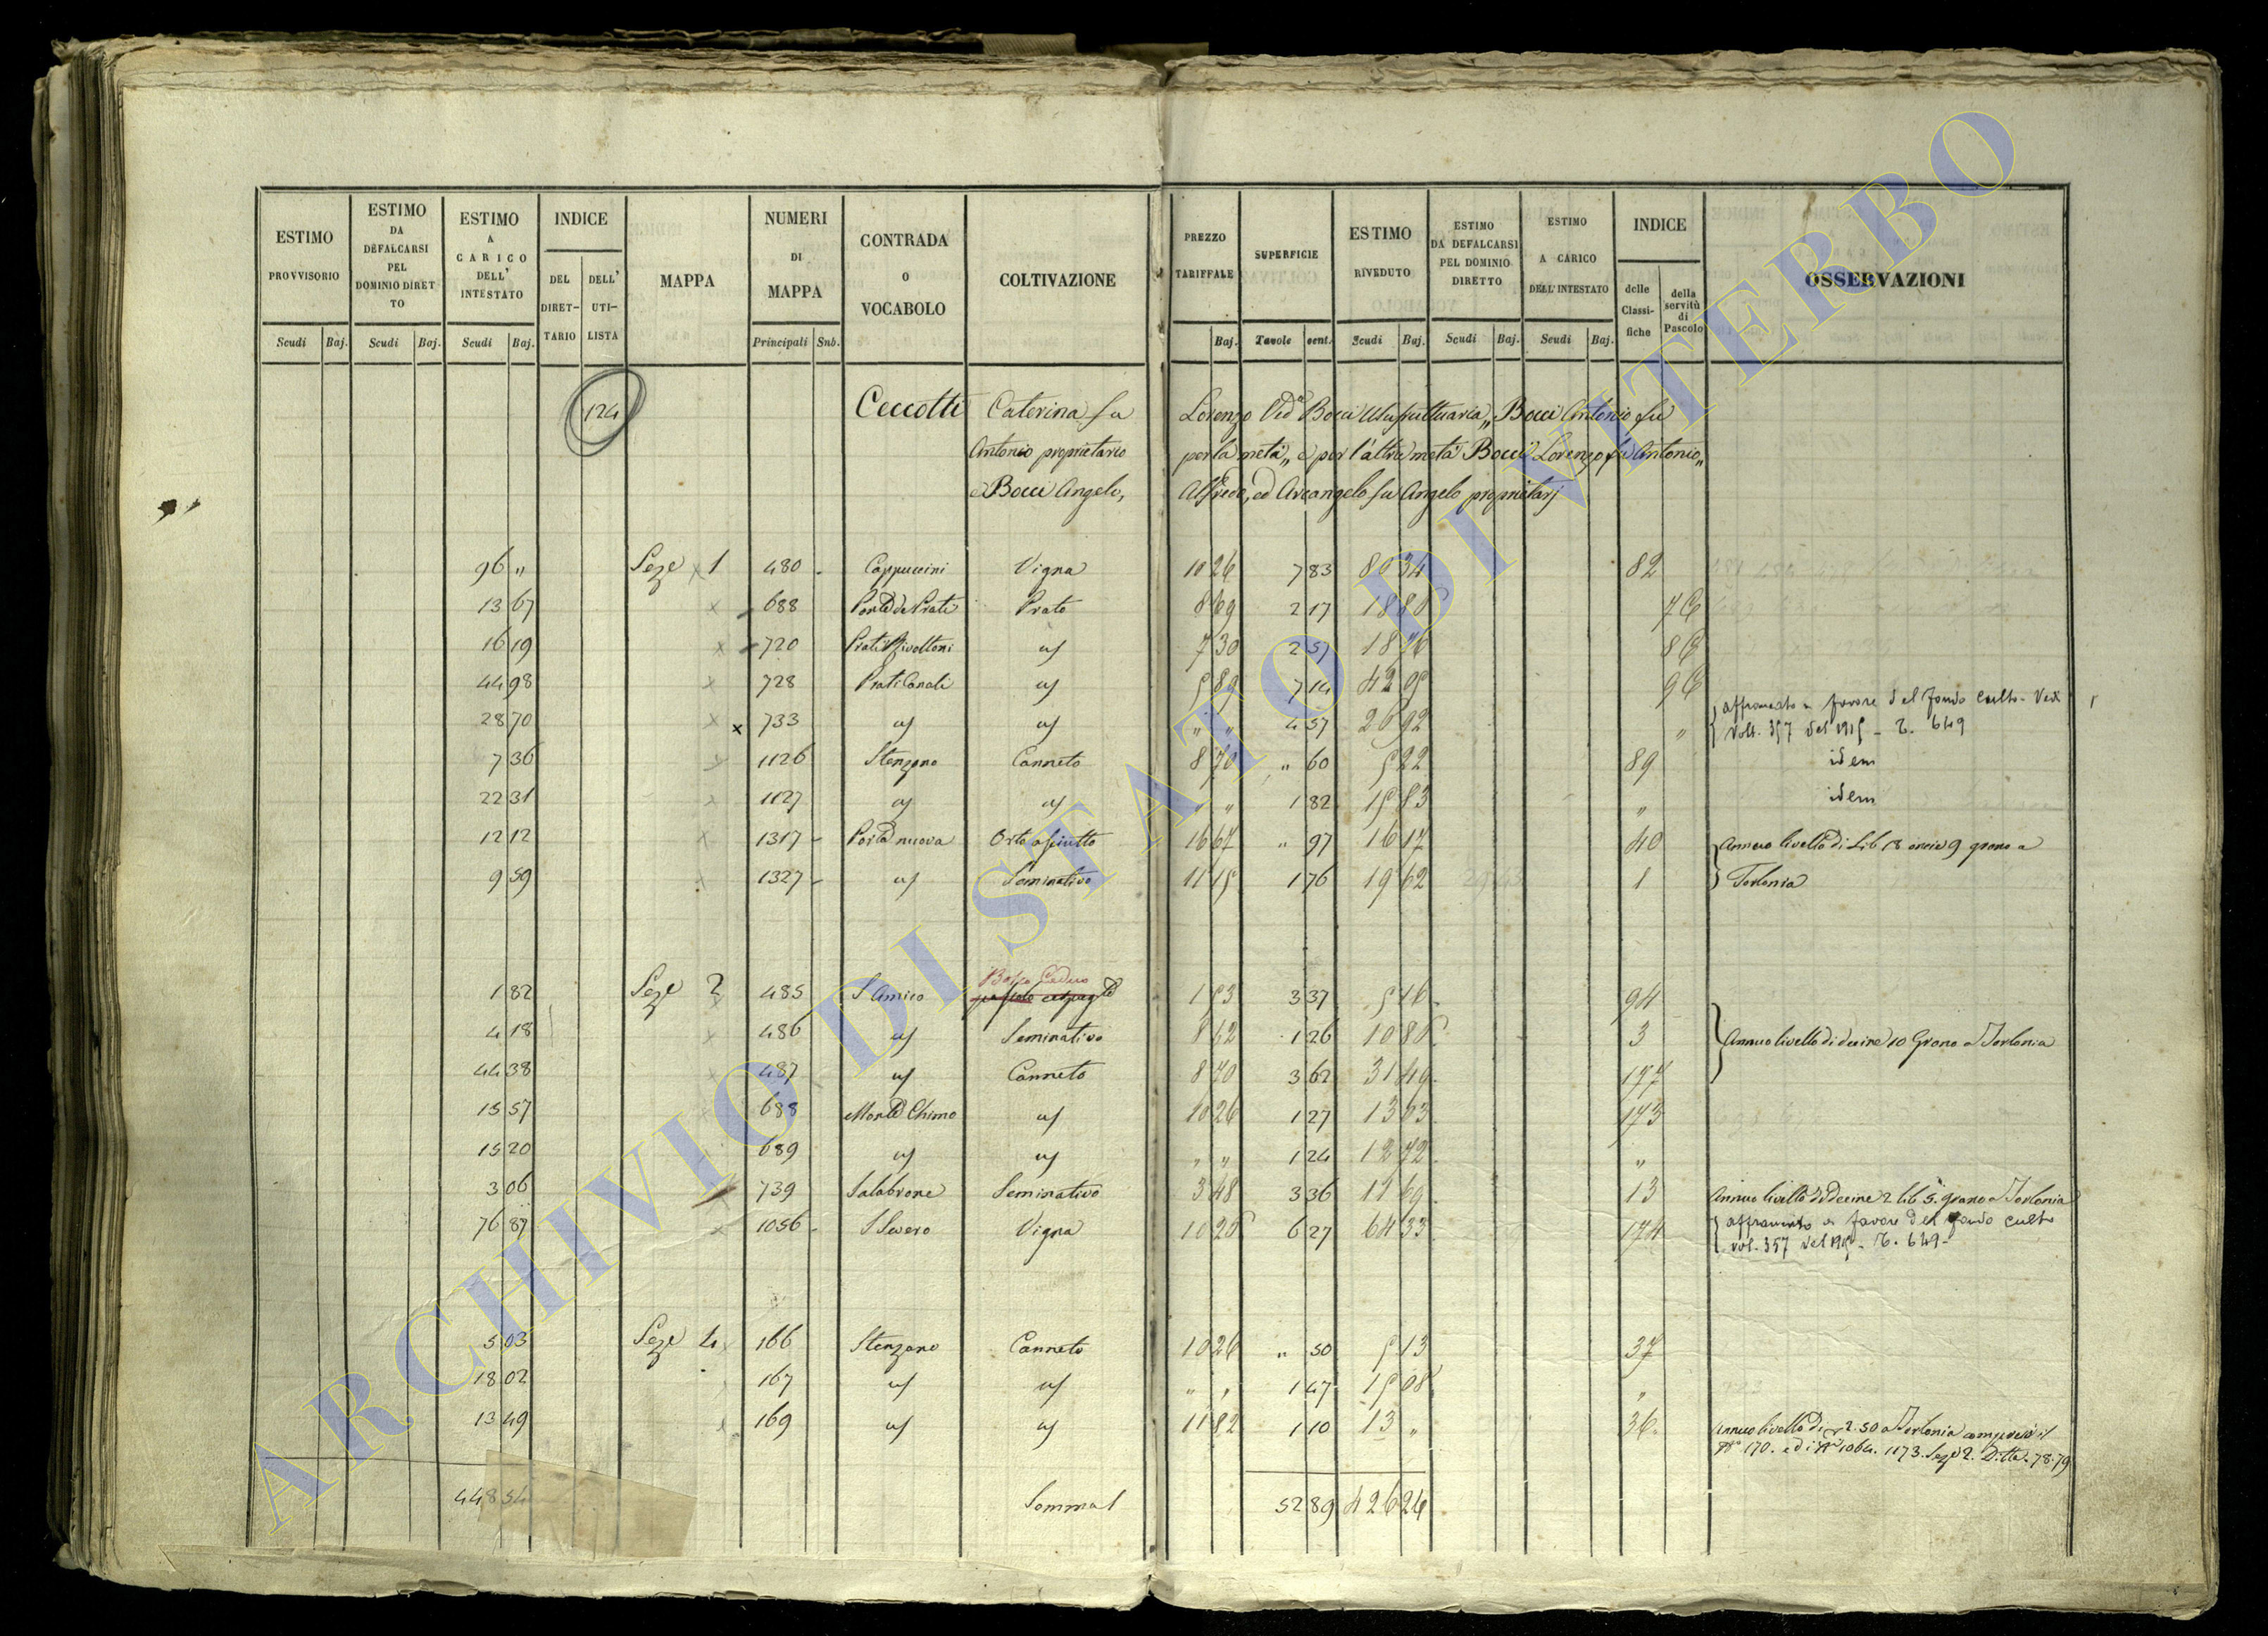 ESTIMO PROVVISORIO Scudi Baj.
ESTIMO DA DEFALCARSI PEL DOMINIO DIRETTO Scudi Baj.
ESTIMO A CARICO DELL' INTESTATO Scudi Baj.
INDICE DEL DIRET-TARIO DELL' UTI-LISTA
MAPPA
NUMERI DI MAPPA Principali Sub.
CONTRADA O VOCABOLO
COLTIVAZIONE
PREZZO TARIFFALE Baj.
SUPERFICIE Tavole cent.
ESTIMO RIVEDUTO Scudi Baj.
ESTIMO DA DEFALCARSI PEL DOMINIO DIRETTO Scudi Baj.
ESTIMO A CARICO DELL' INTESTATO Scudi Baj.
INDICE delle Classi-fiche della servitù di Pascolo
OSSERVAZIONI
124 Ceccotti Caterina fu Lorenzo Ved.a Bocci Usufruttuaria,, Bocci Antonio fu
Antonio proprietario per la metà,, e per l'altra metà Bocci Lorenzo fu Antonio,,
e Bocci Angelo, Alfredo, ed Arcangelo fu Angelo proprietarj
96 " Seze 1 480 Cappuccini Vigna 10 26 7 83 80 34 82
13 67 688 Prato 8 69 2 17 18 86
16 19 720 Prati Rivoltoni 7 30 2 57 18 76
44 98 728 Prati Canale 5 89 7 14 42 05
affrancato a favore del fondo culto. Vedi
28 70 733 " " 4 57 26 92 "
Volt. 357 del 1915 - T. 649
7 36 1126 Stenzano Canneto 8 70 " 60 5 22 89 idem
22 31 1127 " " 1 82 15 83 " idem
12 12 1317 Porta nuova Orto asciutto 16 67 " 97 16 17 40 Annuo livello di Lib 18 oncie 9 grano a
9 59 1327 Seminativo 11 15 1 76 19 62 1 Torlonia
Bosco Ceduo
1 82 Seze 2 485 S Amico 1 53 3 37 5 16 94
4 18 486 Seminativo 8 62 1 26 10 86 3 Annuo livello di decine 10 Grano a Torlonia
44 38 487 Canneto 8 70 3 62 31 49 177
15 57 688 Monte Chimo 10 26 1 27 13 03 173
15 20 689 " " 1 24 12 72 "
3 06 739 Salabrone Seminativo 3 48 3 36 11 69 13 Annuo livello di Decine 2 lib 5 grano a Torlonia
76 87 1056 Vigna 10 26 6 27 64 33 174 affrancato a favore del fondo culto
vol. 357 del 1915 - T. 649 -
5 03 Seze 4 166 Stenzano Canneto 10 26 " 50 5 13 37
18 02 167 " " 1 47 15 08 "
13 49 169 11 82 1 10 13 " 36 Annuo livello di 2.50 a Torlonia compreso il
N° 170. ed i Ni 1064. 1173. Seze 2. Ditta. 78.79
448 54 Somma 52 89 426 26
ARCHIVIO DI STATO DI VITERBO